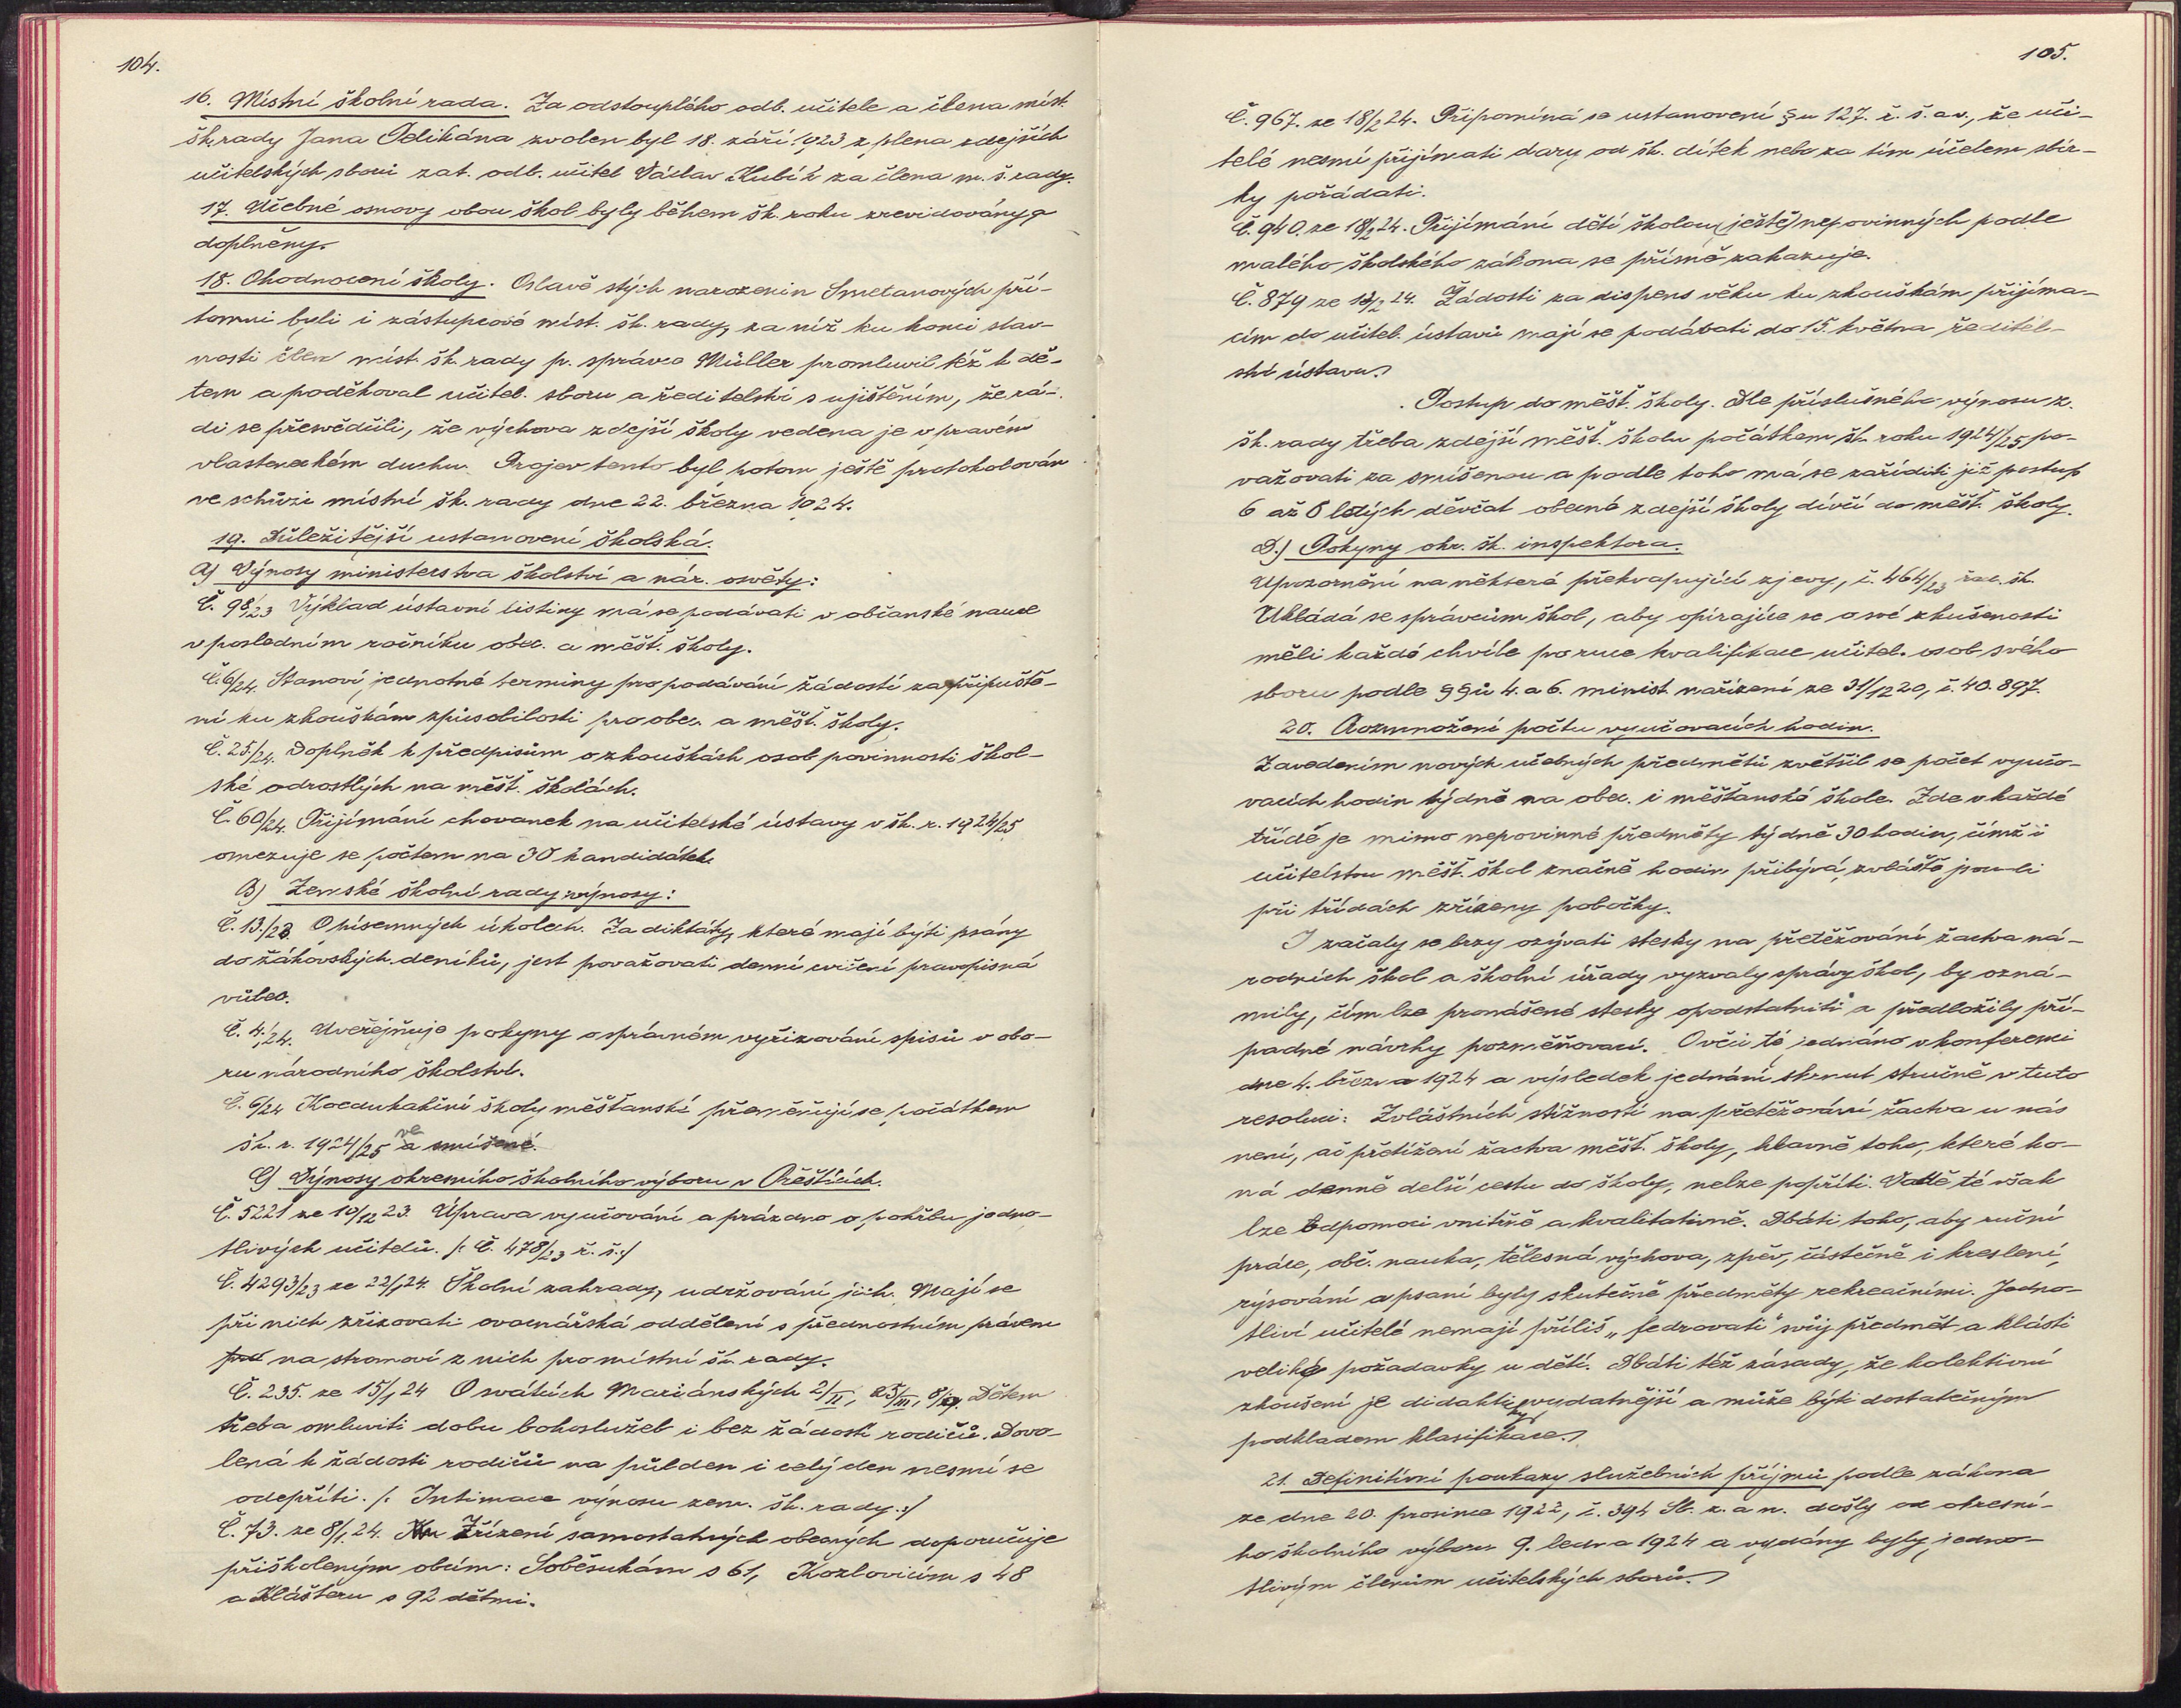 104.
16. Místní školní rada. Za odstouplého odb. učitele a člena míst.
šk. rady Jana Pelikána zvolen byl 18. září 1923 z plena zdejších
učitelských sborů zat. odb. učitel Václav Kubík za člena m. š. rady.
17. Učebné osnovy obou škol byly během šk. roku zrevidovány a
doplněny.
18. Ohodnocení školy. Oslavě stých narozenin Smetanových pří-
tomni byli i zástupcové míst. šk. rady, za niž ku konci slav-
nosti člen míst. šk. rady p. správce Müller promluvil též k dě-
tem a poděkoval učitel. sboru a ředitelství s ujištěním, že rá-
di se přesvědčili, že výchova zdejší školy vedena je v pravém
vlasteneckém duchu. Projev tento byl potom ještě protokolován
ve schůzi místní šk. rady dne 22. března 1924.
19. Důležitější ustanovení školská.
A) Výnosy ministerstva školství a nár. osvěty:
Č. 98/23 Výklad ústavní listiny má se podávati v občanské nauce
v posledním ročníku obec. a měšť. školy.
Č. 6/24. Stanoví jednotné termíny pro podávání žádostí za připuště-
ní ku zkouškám způsobilosti pro obec. a měšť. školy.
Č. 25./24. Doplněk k předpisům o zkouškách osob povinnosti škol-
ské odrostlých na měšť. školách.
Č. 60/24. Přijímání chovanek na učitelské ústavy v šk. r. 1924/25
omezuje se počtem na 30 kandidátek.
B) Zemské školní rady výnosy:
Č. 13./23. O písemných úkolech. Za diktáty, které mají býti psány
do žákovských deníků, jest považovati denní cvičení pravopisná
vůbec.
Č. 4./24. Uveřejňuje pokyny o správném vyřizování spisů v obo-
ru národního školství.
Č. 6/24 Koedukační školy měšťanské přeměňují se počátkem
šk. r. 1924/25 ve smíšené.
C) Výnosy okresního školního výboru v Přešticích.
Č. 5221 ze 10/12 23. Úprava vyučování a prázdno o pohřbu jedno-
tlivých učitelů. /: Č. 478/23 ř. š.:/
Č. 4293/23 ze 22/1 24. Školní zahrady, udržování jich. Mají se
při nich zřizovati ovocnářská oddělení s přednostním právem
na stromoví z nich pro místní šk. rady.
Č. 235. ze 15/1 24 O svátcích Mariánských 2/II, 25/III, 8/IX. Dětem
třeba omluviti dobu bohoslužeb i bez žádosti rodičů. Dovo-
lená k žádosti rodičů na půlden i celý den nesmí se
odepříti. /: Intimace výnosu zem. šk. rady.:/
Č. 73. ze 8/1. 24. Zřízení samostatných obecných doporučuje
přiškoleným obcím: Soběsukám s 61, Kozlovicím s 48
a Klášteru s 92 dětmi.
105.
Č. 967. ze 18/2 24. Připomíná se ustanovení §u 127. ř. š. a v., že uči-
telé nesmí přijímati dary od šk. dítek nebo za tím účelem sbír-
ky pořádati.
Č. 940. ze 18/2 24. Přijímání dětí školou (ještě) nepovinných podle
malého školského zákona se přímě zakazuje.
Č. 879 ze 13/2 24. Žádosti za dispens věku ku zkouškám přijíma-
cím do učitel. ústavů mají se podávati do 15. května ředitel-
ství ústavu.
Postup do měšť. školy. Dle příslušného výnosu z.
šk. rady třeba zdejší měšť. školu počátkem šk. roku 1924/25 po-
važovati za smíšenou a podle toho má se zaříditi již postup
6 až 8 letých děvčat obecné zdejší školy dívčí do měšť. školy.
D.) Pokyny okr. šk. inspektora.
Upozornění na některé překvapující zjevy, č. 464/23 řad. šk.
Ukládá se správcům škol, aby opírajíce se o své zkušenosti
měli každé chvíle po ruce kvalifikace učitel. osob svého
sboru podle §§ů 4. a 6. minist. nařízení ze 31/12 20, č. 40.897.
20. Rozmnožení počtu vyučovacích hodin.
Zavedením nových učebných předmětů zvětšil se počet vyučo-
vacích hodin týdně na obec. i měšťanské škole. Zde v každé
třídě je mimo nepovinné předměty týdně 30 hodin, čímž i
učitelstvu měšť. škol značně hodin přibývá, zvláště jsou-li
při třídách zřízeny pobočky.
I začaly se brzy ozývati stesky na přetěžování žactva ná-
rodních škol a školní úřady vyzvaly správy škol, by ozná-
mily, čím lze pronášené stesky opodstatniti a předložily pří-
padné návrhy pozměňovací. O věci té jednáno v konferenci
dne 4. března 1924 a výsledek jednání shrnut stručně v tuto
resoluci: Zvláštních stížností na přetěžování žactva u nás
není, ač přetížení žactva měšť. školy, hlavně toho, které ko-
ná denně delší cestu do školy, nelze popříti. Vadě té však
lze odpomoci vnitřně a kvalitativně. Dbáti toho, aby ruční
práce, obč. nauka, tělesná výchova, zpěv, částečně i kreslení,
rýsování a psaní byly skutečně předměty rekreačními. Jedno-
tliví učitelé nemají příliš „fedrovati" svůj předmět a klásti
veliké požadavky u dětí. Dbáti též zásady, že kolektivní
zkoušení je didakticky vydatnější a může býti dostatečným
podkladem klasifikace.
21. Definitivní poukazy služebních příjmů podle zákona
ze dne 20. prosince 1922, č. 394 Sb. z. a n. došly od okresní-
ho školního výboru 9. ledna 1924 a vydány byly jedno-
tlivým členům učitelských sborů.